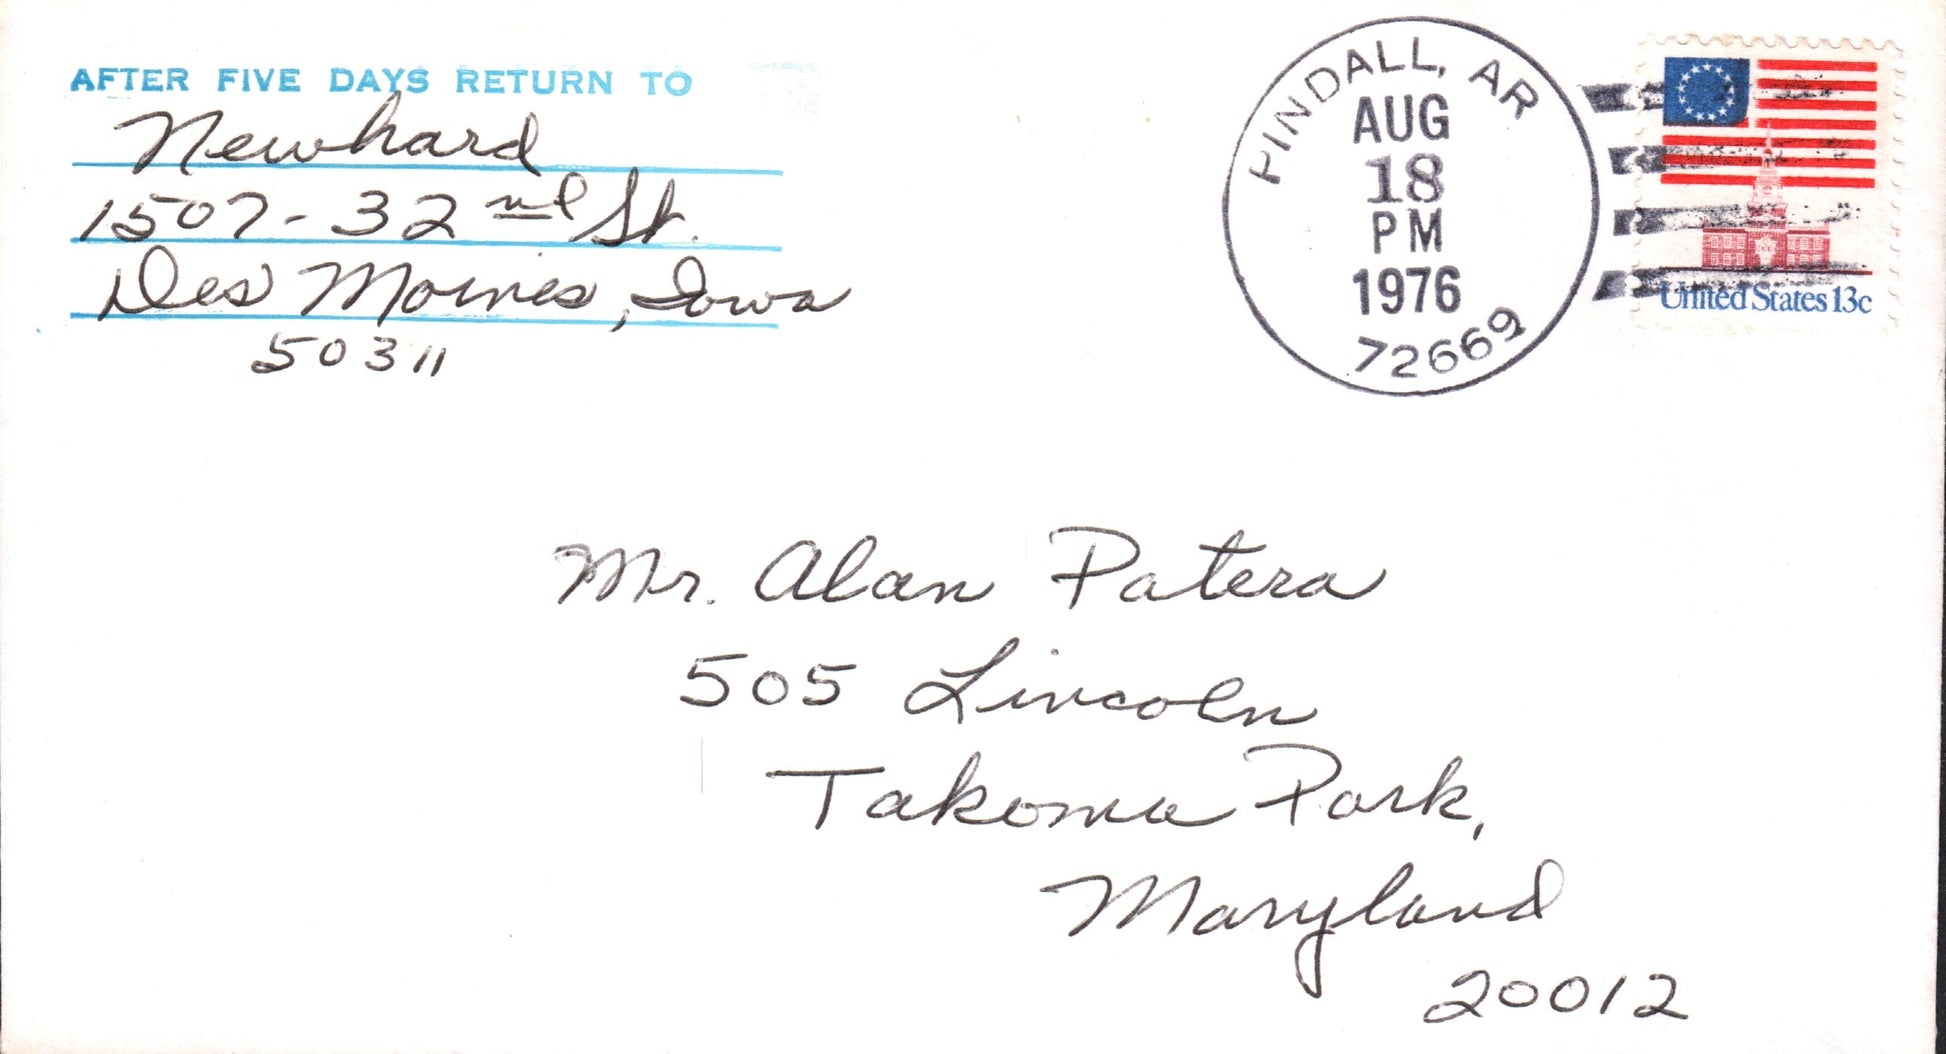 AFTER FIVE DAYS RETURN TO
Newhard
1507-32nd St.
Des Moines, Iowa
50311
PINDALL, AR
AUG
18
PM
1976
72669
United States 13c
Mr. Alan Patera
505 Lincoln
Takoma Park,
Maryland
20012